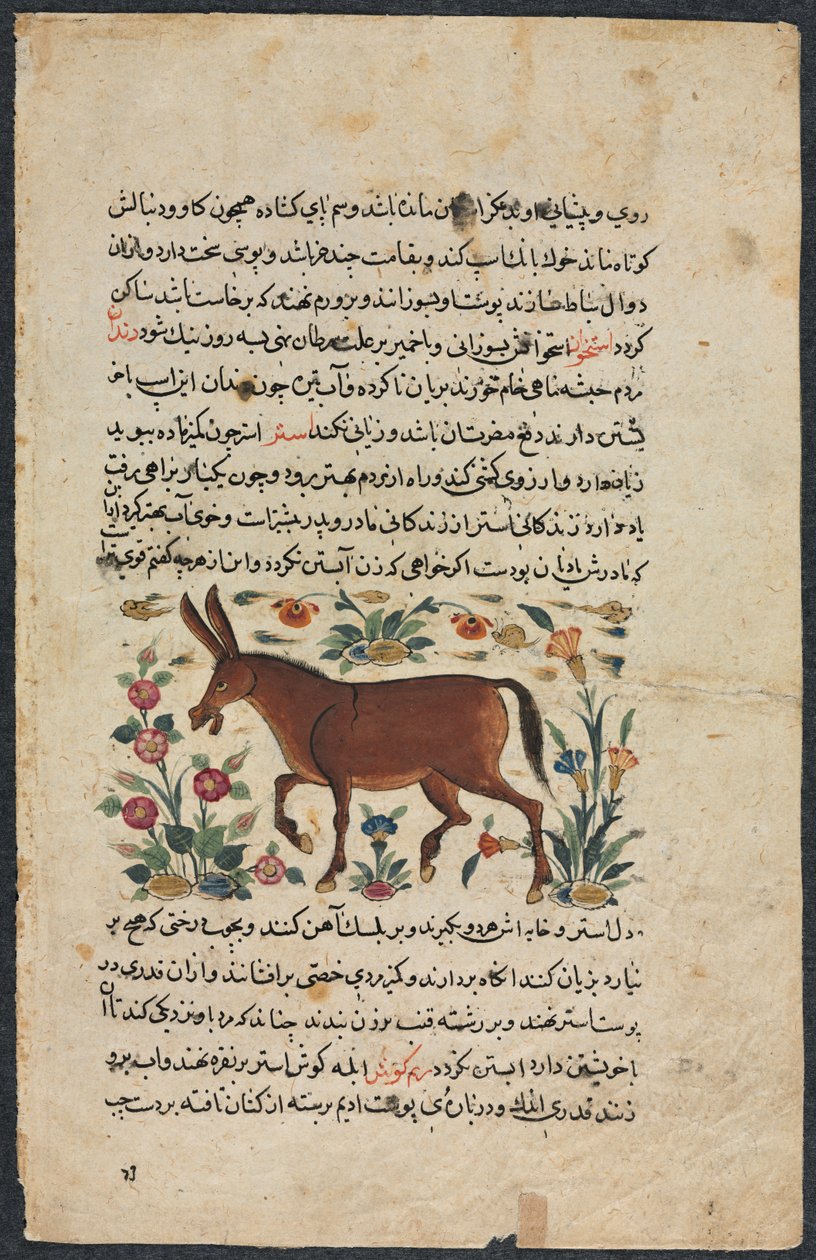 روي و پيشاني او بد مكر ا ن مانده باشد و سم پاي كشاده همچون كاو و دنبالش
كوتاه ماند خوك بانك اسپ كند و بقامت چند خر باشد و پوستي سخت دارد و ازان
دوال سازند پوست او بسوزانند و بر ورم نهند كه برخاست باشد ساكن
كردد استخوان استخوانش بسوزاني و با خمير بر علت سرطان نهي بسه روز نيك شود دندان
مردم حبشه ماهي خام خورند بريان ناكرده و آب تيره چون دندان اين اسپ باخو
يشتن دارند دفع مضرتشان باشد و زياني نكند استر استر چون كميز ماده ببويد
زيان دارد و آرزوي كشني كند و راه از مردم بهتر برود و چون يكبار براهي برفت
ياد دارد زندكاني استر از زندكاني مادر و پدر بيشتر است و خوي آب بهتر كيرد از آن
كه مادرش ماديان بودست اكر خواهي كه زن آبستن نكردد و اين از هرچه كفتم قوي تر است
دل استر و خايه اش هر دو بكيرند و بر آهن كنند و بچوب درختي كه هيچ بر
نيارد بزيان كنند انكاه بردارند و كميز مردي خصي برافشانند و ازان قدري در
پوست استر نهند و بر رشته قنب بر زن بندند چنانكه مرد با او نزديكي كند تا آن
باخويشتن دارد ابستن نكردد ريم كوش كوش استر بر نقره نهند و اب برو
زنند قدري و در پاره ي پوست اديم بر بسته از كتان تافته بر دست چپ
۷۳